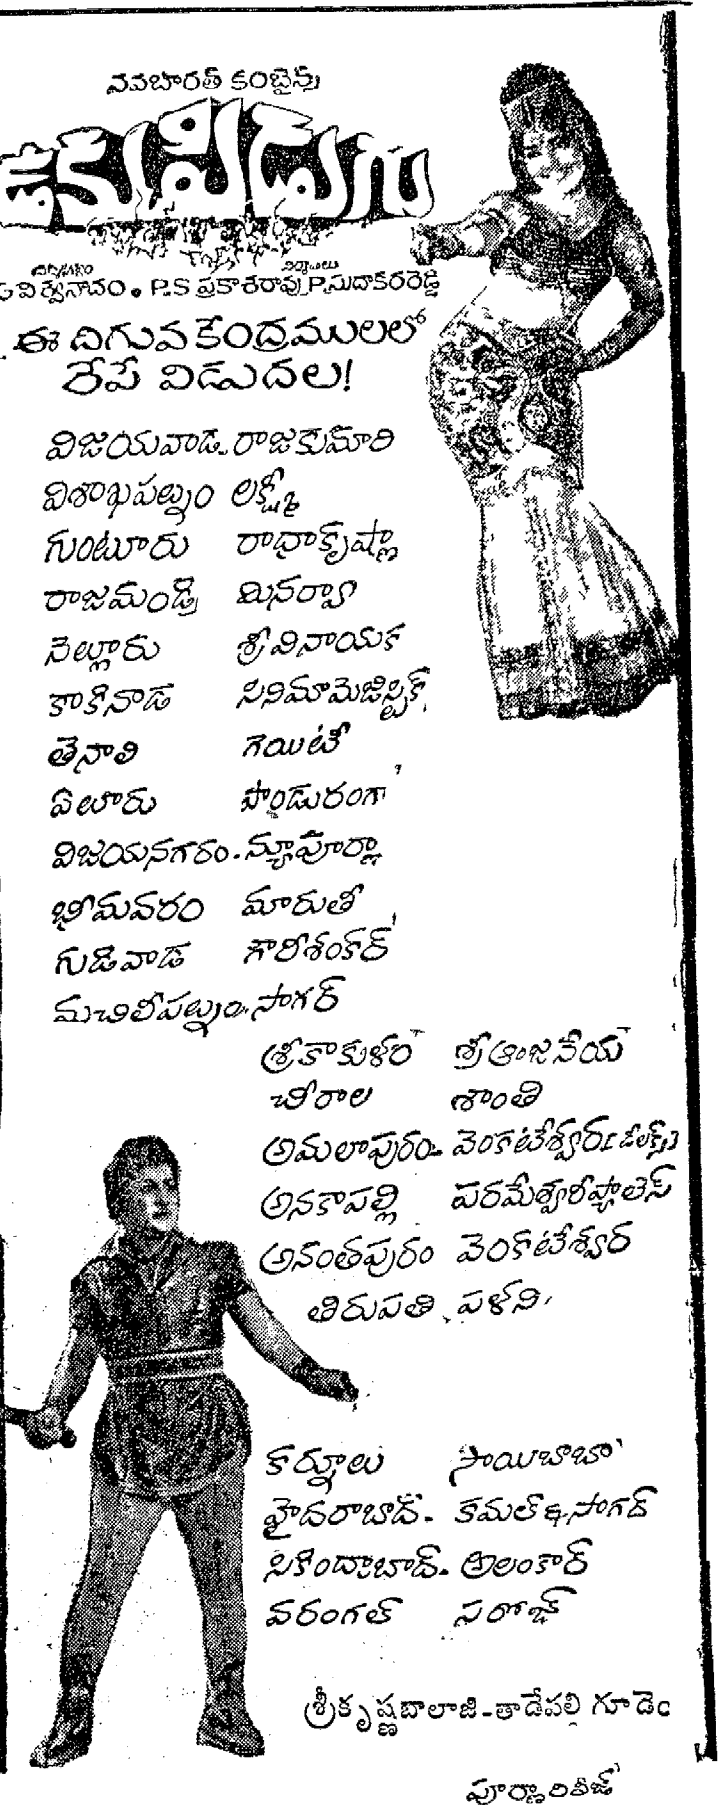 నవభారత్ కంబైన్సు
పిడుగు
దర్శకత్వం నిర్మాతలు
విశ్వనాధం. P.S ప్రకాశరావు, P.సుదాకరరెడ్డి
ఈ దిగువ కేంద్రములలో
రేపే విడుదల!
విజయవాడ - రాజకుమారి
విశాఖపట్నం లక్ష్మీ
గుంటూరు రాధాకృష్ణా
రాజమండ్రి మినర్వా
నెల్లూరు శ్రీవినాయక
కాకినాడ సినిమామెజిస్టిక్
తెనాలి గెయిటీ
ఏలూరు పాండురంగా
విజయనగరం - న్యూపూర్ణా
భీమవరం మారుతీ
గుడివాడ గౌరీశంకర్
మచిలీపట్నం. సాగర్
శ్రీకాకుళం శ్రీఆంజనేయ
చీరాల శాంతి
అమలాపురం - వెంకటేశ్వర (డీలక్స్)
అనకాపల్లి పరమేశ్వరీప్యాలెస్
అనంతపురం వెంకటేశ్వర
తిరుపతి పళని
కర్నూలు సాయిబాబా
హైదరాబాద్ - కమల్ & సాగర్
సికింద్రాబాద్ - అలంకార్
వరంగల్ సరోజ్
శ్రీకృష్ణబాలాజి - తాడేపల్లి గూడెం
పూర్ణారిలీజ్